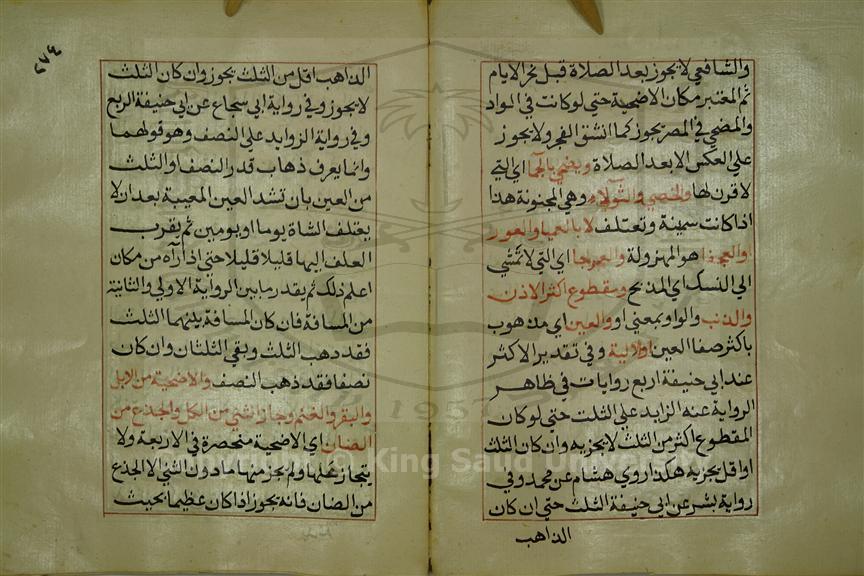 والشافعي لا يجوز بعد الصلاة قبل نحر الايام
ثم المعتبر مكان الاضحية حتى لو كانت في السواد
والمضحي في المصر يجوز كما انشق الفجر ولا يجوز
على العكس الا بعد الصلاة ويضحي بالجما اي التي
لا قرن لها والخصي والثولاء وهي المجنونة هذا
اذا كانت سمينة وتعتلف لا بالعميا والعور
والعجفا هو المهزولة والعرجا اي التي لا تمشي
الى النسك اي المذبح ومقطوع اكثر الاذن
والذنب والواو بمعنى او والعين اي مذهوب
باكثر ضفا العين او الالية وفي تقدير الاكثر
عند ابي حنيفة اربع روايات في ظاهر
الرواية عنه الزايد على الثلث حتى لو كان
المقطوع اكثر من الثلث لا يجزيه وان كان الثلث
او اقل يجزيه هكذا روي هشام عن محمد وفي
رواية بشر عن ابي حنيفة الثلث حتى ان كان
الذاهب
٢٧٤
الذاهب اقل من الثلث يجوز وان كان الثلث
لا يجوز وفي رواية ابي سجاع عن ابي حنيفة الربع
وفي رواية الزوايد على النصف وهو قولهما
وانما يعرف ذهاب قدر النصف او الثلث
من العين بان تشد العين المعيبة بعد ان لا
يعتلف الشاة يوما او يومين ثم يقرب
العلف اليها قليلا قليلا حتى اذا رآه من مكان
اعلم ذلك ثم يقدر ما بين الرواية الاولى والثانية
من المسافة فان كان المسافة بينهما الثلث
فقد دهب الثلث وبقي الثلثان وان كان
نصفا فقد ذهب النصف والاضحية من الابل
والبقر والغنم وجاز الثني من الكل والجذع من
الضان اي الاضحية منحصرة في الاربعة ولا
يتجاز عنها ولم يجز منها ما دون الثني الا الجذع
من الضان فانه يجوز اذا كان عظيما بحيث
1957
King Saud